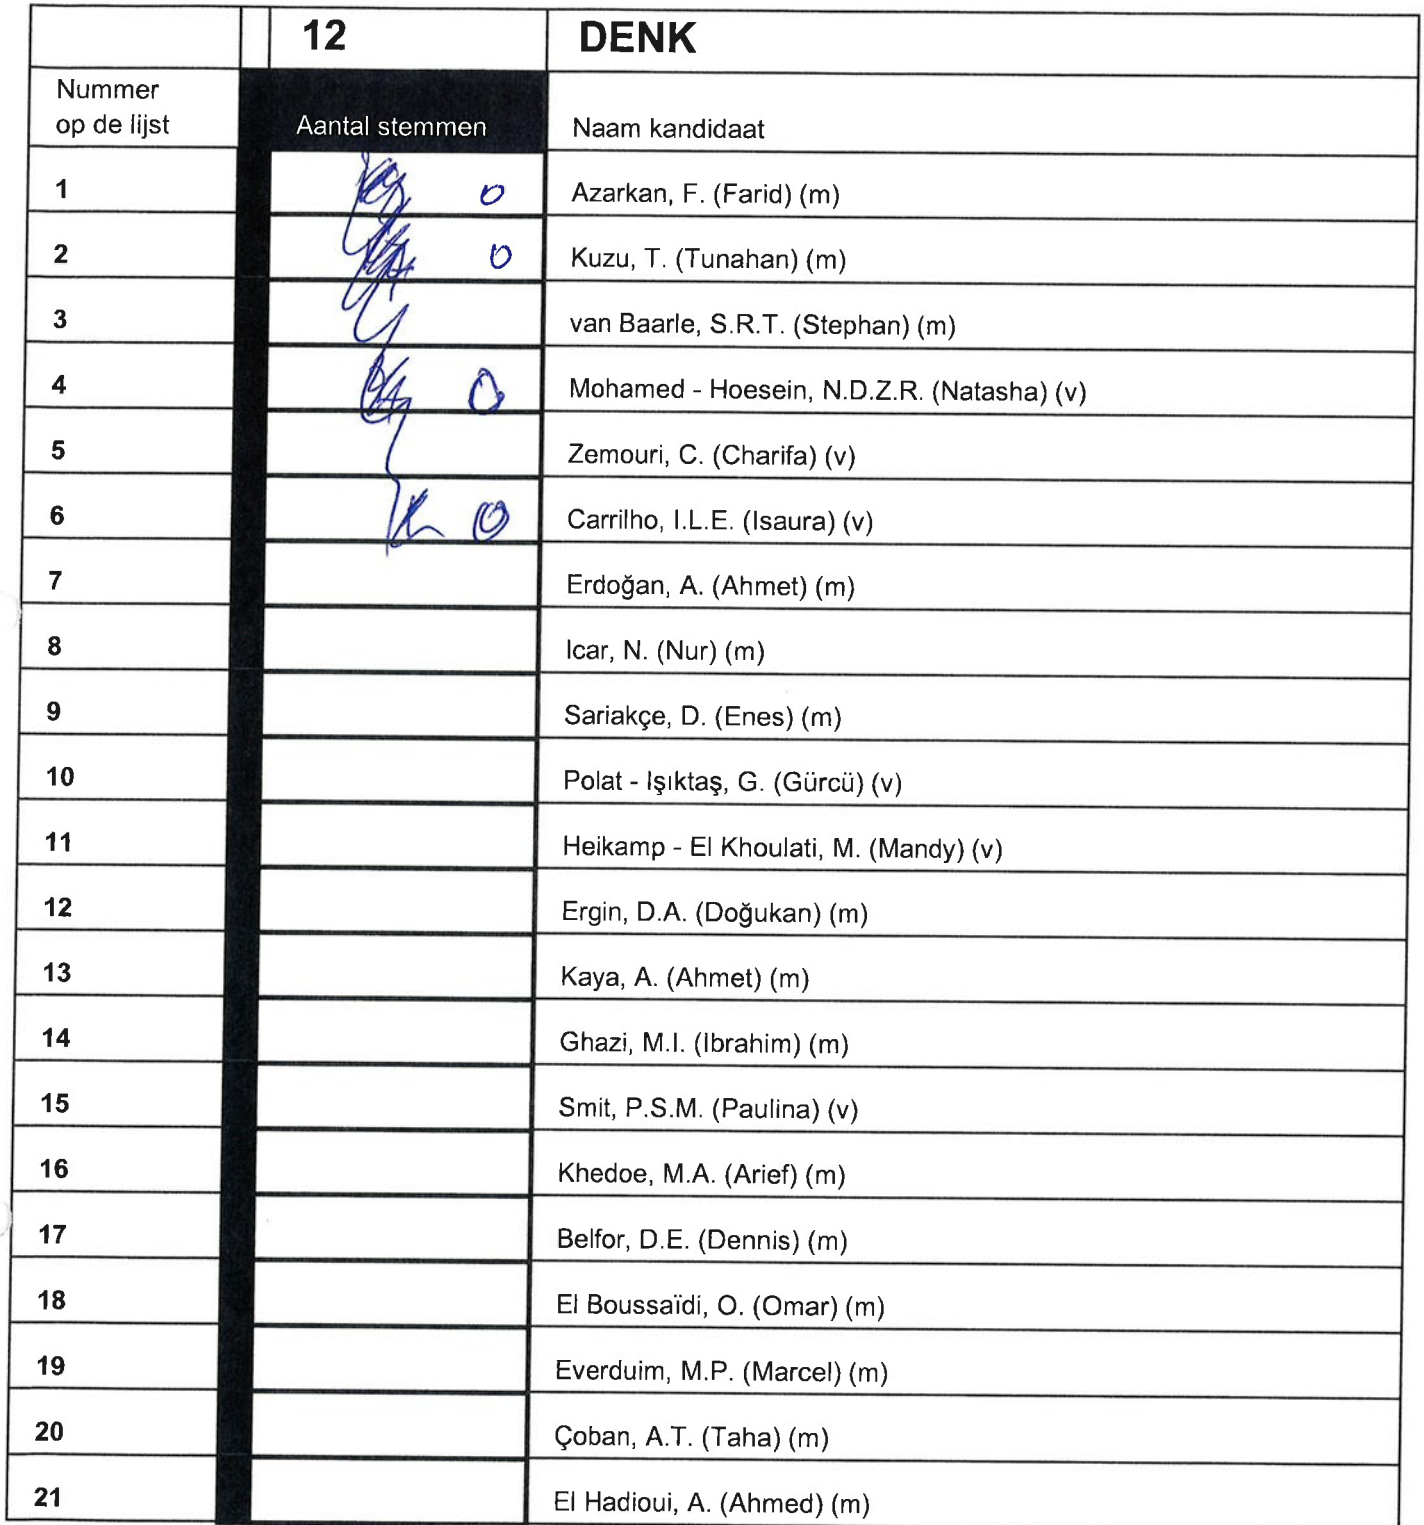 12 DENK
Nummer
op de lijst Aantal stemmen Naam kandidaat
1 0 Azarkan, F. (Farid) (m)
2 0 Kuzu, T. (Tunahan) (m)
3 van Baarle, S.R.T. (Stephan) (m)
4 0 Mohamed - Hoesein, N.D.Z.R. (Natasha) (v)
5 Zemouri, C. (Charifa) (v)
6 0 Carrilho, I.L.E. (Isaura) (v)
7 Erdoğan, A. (Ahmet) (m)
8 Icar, N. (Nur) (m)
9 Sariakçe, D. (Enes) (m)
10 Polat - Işıktaş, G. (Gürcü) (v)
11 Heikamp - El Khoulati, M. (Mandy) (v)
12 Ergin, D.A. (Doğukan) (m)
13 Kaya, A. (Ahmet) (m)
14 Ghazi, M.I. (Ibrahim) (m)
15 Smit, P.S.M. (Paulina) (v)
16 Khedoe, M.A. (Arief) (m)
17 Belfor, D.E. (Dennis) (m)
18 El Boussaïdi, O. (Omar) (m)
19 Everduim, M.P. (Marcel) (m)
20 Çoban, A.T. (Taha) (m)
21 El Hadioui, A. (Ahmed) (m)